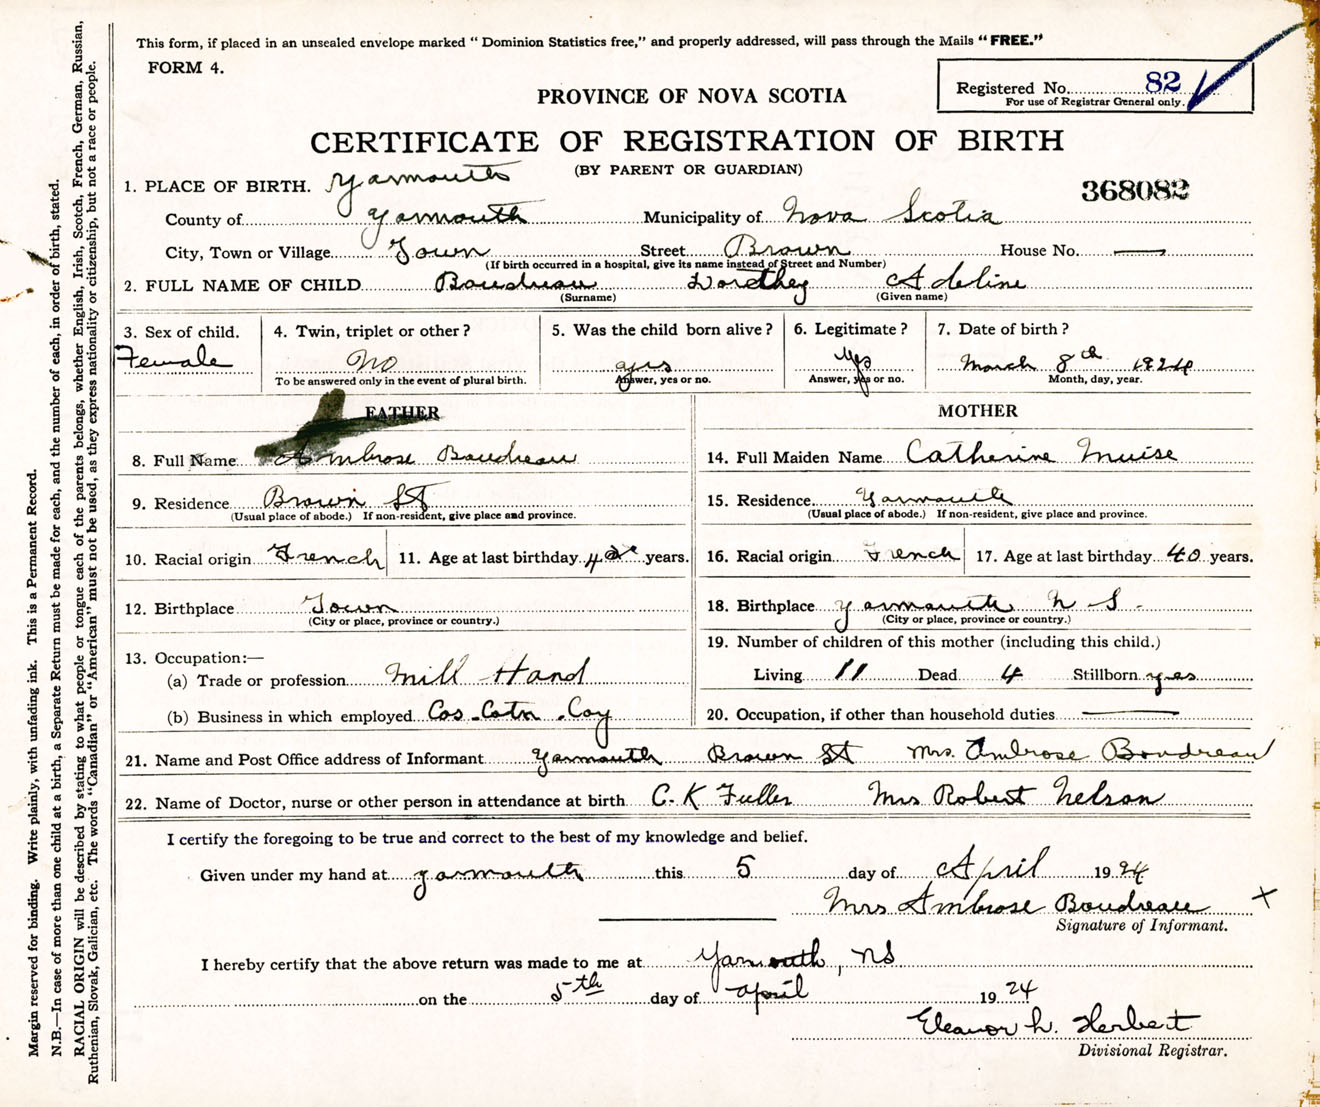 This form, if placed in an unsealed envelope marked “ Dominion Statistics free,” and properly addressed, will pass through the Mails “ FREE.”
FORM 4.
Registered No. 82
For use of Registrar General only.
PROVINCE OF NOVA SCOTIA
CERTIFICATE OF REGISTRATION OF BIRTH
(BY PARENT OR GUARDIAN)
368082
1. PLACE OF BIRTH. Yarmouth
County of Yarmouth Municipality of Nova Scotia
City, Town or Village Town Street Brown House No. —
(If birth occurred in a hospital, give its name instead of Street and Number)
2. FULL NAME OF CHILD Boudreau Dorothey Adeline
(Surname) (Given name)
3. Sex of child. 4. Twin, triplet or other ? 5. Was the child born alive ? 6. Legitimate ? 7. Date of birth ?
Female No yes Yes March 8th 1924
To be answered only in the event of plural birth. Answer, yes or no. Answer, yes or no. Month, day, year.
FATHER MOTHER
8. Full Name Ambrose Boudreau 14. Full Maiden Name Catherine Muise
9. Residence Brown St 15. Residence Yarmouth
(Usual place of abode.) If non-resident, give place and province. (Usual place of abode.) If non-resident, give place and province.
10. Racial origin French 11. Age at last birthday years. 16. Racial origin French 17. Age at last birthday 40 years.
12. Birthplace Town 18. Birthplace Yarmouth N S -
(City or place, province or country.) (City or place, province or country.)
13. Occupation:— 19. Number of children of this mother (including this child.)
(a) Trade or profession Mill Hand Living 11 Dead 4 Stillborn yes
(b) Business in which employed Cos. Cotn. Coy 20. Occupation, if other than household duties —
21. Name and Post Office address of Informant Yarmouth Brown St Mrs. Ambrose Boudreau
22. Name of Doctor, nurse or other person in attendance at birth C. K Fuller Mrs Robert Nelson
I certify the foregoing to be true and correct to the best of my knowledge and belief.
Given under my hand at Yarmouth this 5 day of April 1924
Mrs Ambrose Boudreau X
Signature of Informant.
I hereby certify that the above return was made to me at Yarmouth, NS
on the 5th day of April 1924
Eleanor L. Herbert
Divisional Registrar.
Margin reserved for binding. Write plainly, with unfading ink. This is a Permanent Record.
N.B.—In case of more than one child at a birth, a Separate Return must be made for each, and the number of each, in order of birth, stated.
RACIAL ORIGIN will be described by stating to what people or tongue each of the parents belongs, whether English, Irish, Scotch, French, German, Russian,
Ruthenian, Slovak, Galician, etc. The words “Canadian” or “American” must not be used, as they express nationality or citizenship, but not a race or people.